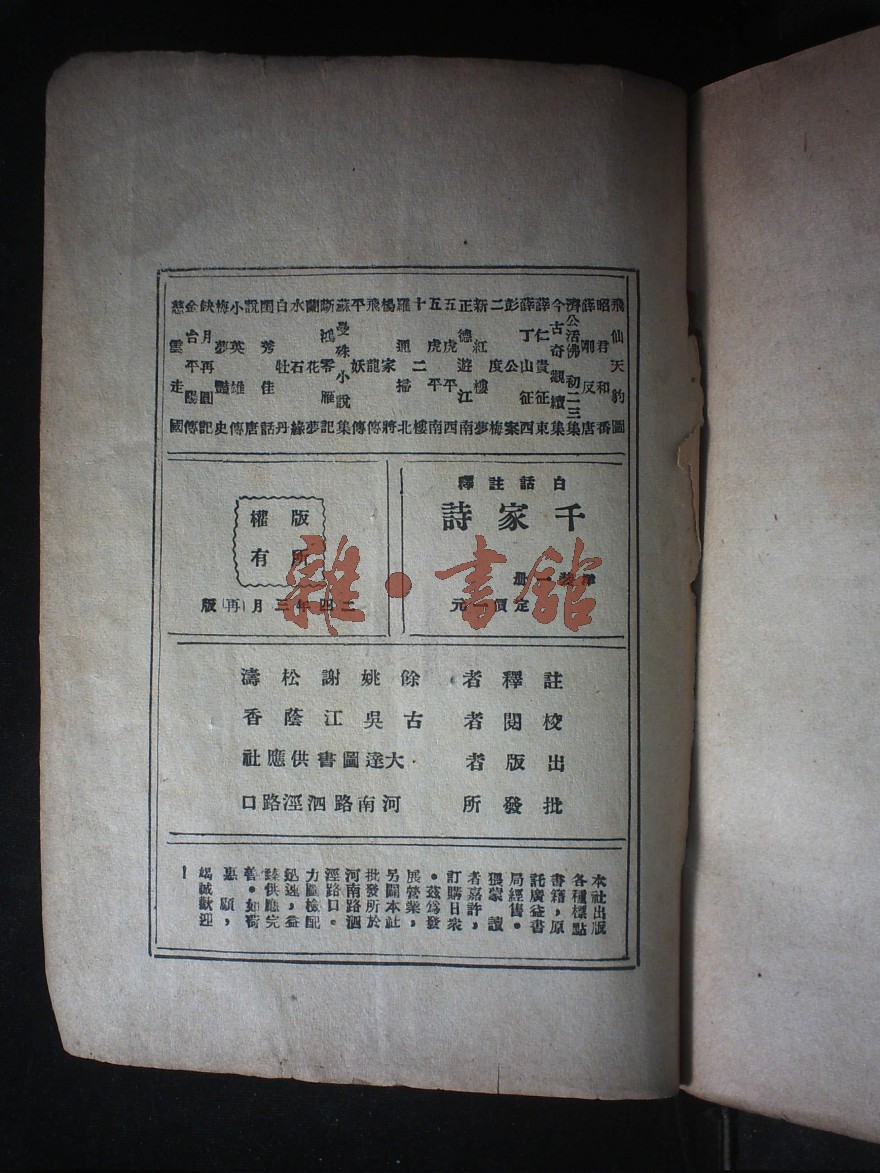 飛仙天豹圖
昭君和番
薛剛反唐
濟公活佛初二三集
今古奇觀續集
薛仁貴征東
薛丁山征西
彭公案
二度梅
新紅樓夢
正德遊江南
五虎平西
五虎平南
十二樓
羅通掃北
楊家將
飛龍傳
平妖傳
蘇曼殊小說集
斷鴻零雁記
蘭花夢
水石緣
白牡丹
閨芳佳話
說唐
小英雄傳
梅夢豔史
缺月再圓記
金台平陽傳
慈雲走國
白話註釋
千家詩
洋裝一册
定價一元
版權
所有
二四年三月(再)版
雜·書館
註釋者 餘姚謝松濤
校閱者 古吳江蔭香
出版者 大達圖書供應社
批發所 河南路泗涇路口
本社出版
各種標點
書籍,原
託廣益書
局經售。
猥蒙 讀
者嘉許,
訂購日衆
。茲爲發
展營業,
另闢本社
批發所於
河南路泗
涇路口。
力圖檢配
迅速,益
臻供應完
善。如荷
惠顧,
竭誠歡迎
!